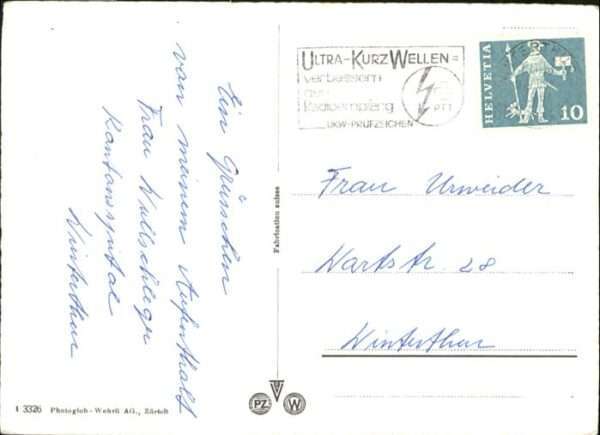 Ein Grüsschen
von meinem Aufenthalt
Frau Wullschleger
Kantonsspital
Winterthur
ULTRA-KURZ WELLEN =
verbessern
den
Radioempfang
UKW-PRÜFZEICHEN
PTT
HELVETIA
10
Frau Urweider
Wartstr. 28
Winterthur
Fabrication suisse
1 3326 Photoglob-Wehrli AG., Zürich
PZ
W